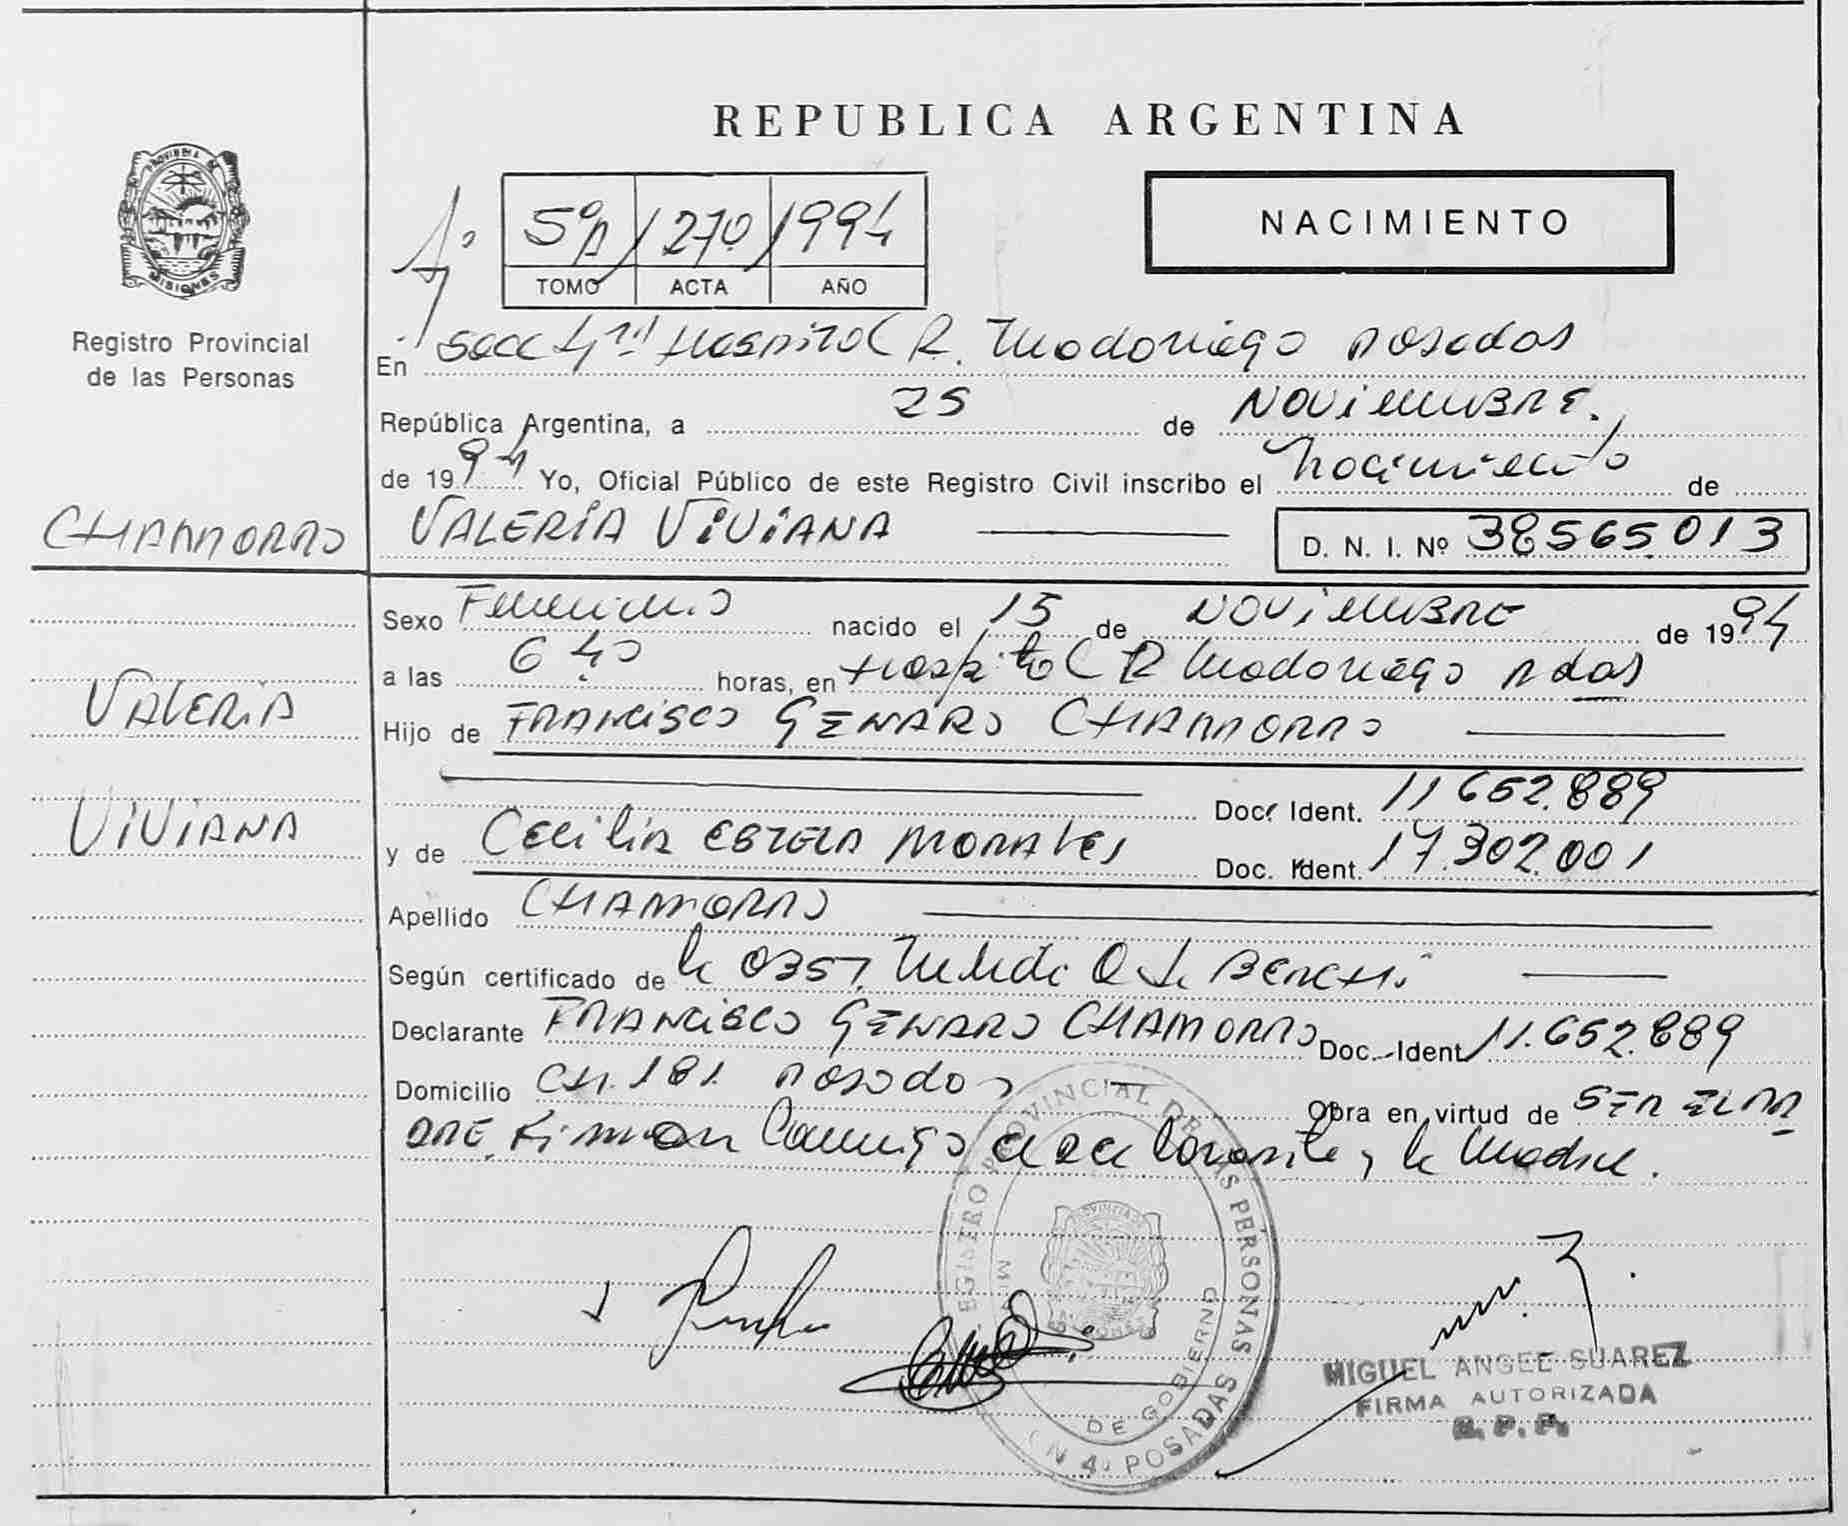 REPUBLICA ARGENTINA
PROVINCIA DE
MISIONES
Registro Provincial
de las Personas
5º 1270 1994
TOMO ACTA AÑO
NACIMIENTO
En Secc 4ta Hospital R. Madariaga Posadas
República Argentina, a 25 de NOVIEMBRE.
de 1994 Yo, Oficial Público de este Registro Civil inscribo el Nacimiento de
CHAMORRO
VALERIA VIVIANA
D. N. I. Nº 38565.013
Sexo Femenino nacido el 15 de NOVIEMBRE de 1994
a las 6 40 horas, en Hospital R Madariaga Pdas
VALERIA
Hijo de FRANCISCO GENARO CHAMORRO
Doc. Ident. 11 652.889
VIVIANA
y de CECILIA ESTELA MORALES Doc. Ident. 17.302.001
Apellido CHAMORRO
Según certificado de la OBST.
Declarante FRANCISCO GENARO CHAMORRO Doc. Ident 11.652.889
Domicilio CH. 181. Posadas
Obra en virtud de SER EL PA
DRE. Firman Conmigo el declarante y la Madre.
REGISTRO PROVINCIAL DE LAS PERSONAS
DE GOBIERNO
N 4 POSADAS
MIGUEL ANGEL SUAREZ
FIRMA AUTORIZADA
R. P. P.